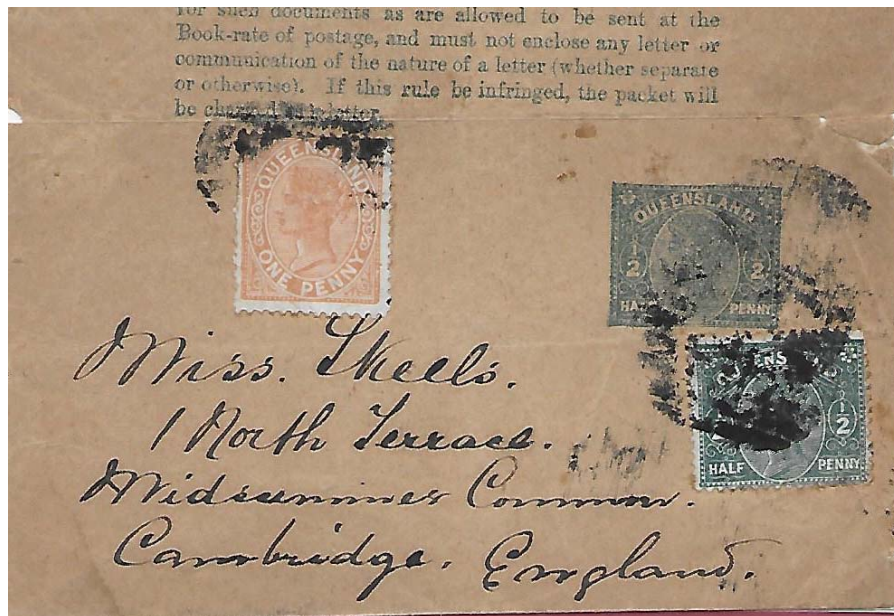 for such documents as are allowed to be sent at the
Book-rate of postage, and must not enclose any letter or
communication of the nature of a letter (whether separate
or otherwise). If this rule be infringed, the packet will
be charged as a letter.
QUEENSLAND
ONE PENNY
QUEENSLAND
1/2 1/2
HALF PENNY
QUEENSLAND
1/2
HALF PENNY
Miss. Skeels.
1 North Terrace.
Midsummer Common.
Cambridge. England.